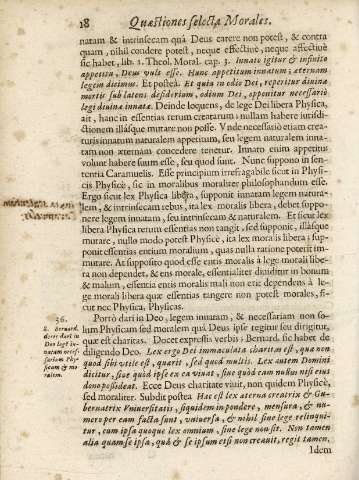 18 Quæstiones selectæ Morales.
natam & intrinsecam quâ Deus carere non potest, & contra
quam, nihil condere potest, neque effectivè, neque affectivè
sic habet, lib. 1. Theol. Moral. cap. 3. Innato igitur & infinito
appetitu, Deus vult esse. Hunc appetitum innatum; æternam
legem dicimus. Et postea. Et quis in odio Dei, reperitur divina
mortis sub latens desiderium, odium Dei, opponitur necessariò
legi divinæ innatæ. Deinde loquens, de lege Dei libera Physica,
ait, hanc in essentias rerum creatarum; nullam habere iurisdi-
ctionem illasque mutare non posse. Vnde necessariò etiam crea-
turis innatum naturalem appetitum, seu legem naturalem inna-
tam non æternam concedere tenetur. Innato enim appetitu
volunt habere suum esse, seu quod sunt. Nunc suppono in sen-
tentia Caramuelis. Esse principium irrefragabile sicut in Physi-
cis Physicè, sic in moralibus moraliter philosophandum esse.
Ergo sicut lex Physica libera, supponit innatam legem natura-
lem, & intrinsecam rebus, ita lex moralis libera, debet suppo-
nere legem innatam, seu intrinsecam & naturalem. Et sicut lex
libera Physica rerum essentias non tangit, sed supponit, illasque
mutare, nullo modo potest Physicè, ita lex moralis libera; sup-
ponit essentias entium moralium, quas nulla ratione poterit im-
mutare. At supposito quod esse entis moralis à lege morali libe-
ra non dependet, & ens morale, essentialiter dividitur in bonum
& malum, essentia entis moralis mali non erit dependens à le-
ge morali libera quæ essentias tangere non potest morales, si-
cut nec Physica, Physicas.
36.
S. Bernard.
dicere dari in
Deo legem in-
natam neces-
sariam Phy-
sicam & mo-
ralem.
Porrò dari in Deo, legem innatam, & necessariam non so-
lum Physicam sed moralem quâ Deus ipse regitur seu dirigitur,
quæ est charitas. Docet expressis verbis; Bernard. sic habet de
diligendo Deo. Lex ergo Dei immaculata charitas est, quæ non
quod sibi vtile est, quærit, sed quod multis. Lex autem Domini
dicitur, sive quod ipse ex ea vivat, sive quod eam nullus nisi eius
dono possideat. Ecce Deus charitate vivit, non quidem Physicè,
sed moraliter. Subdit postea Hæc est lex æterna creatrix & Gu-
bernatrix Vniversitatis, siquidem in pondere, mensura, & nu-
mero per eam facta sunt, vniversa, & nihil sine lege relinqui-
tur, cum ipsa quoque lex omnium, sine lege non sit. Non tamen
alia quam se ipsa, quâ & se ipsum etsi non creavit, regit tamen.
Idem